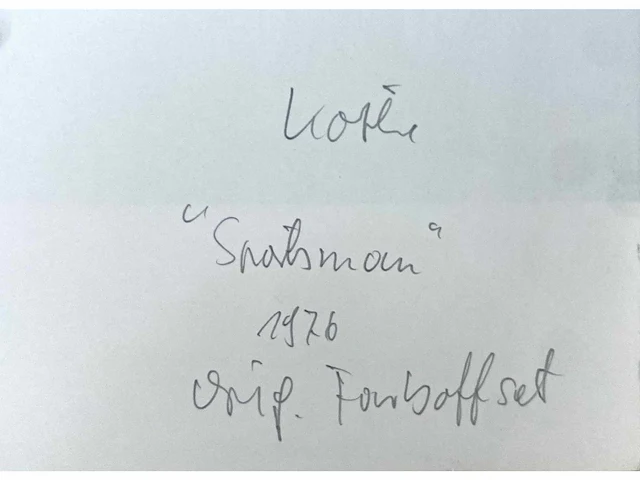 Köthe
"Sportsman"
1976
Orig. Farboffset